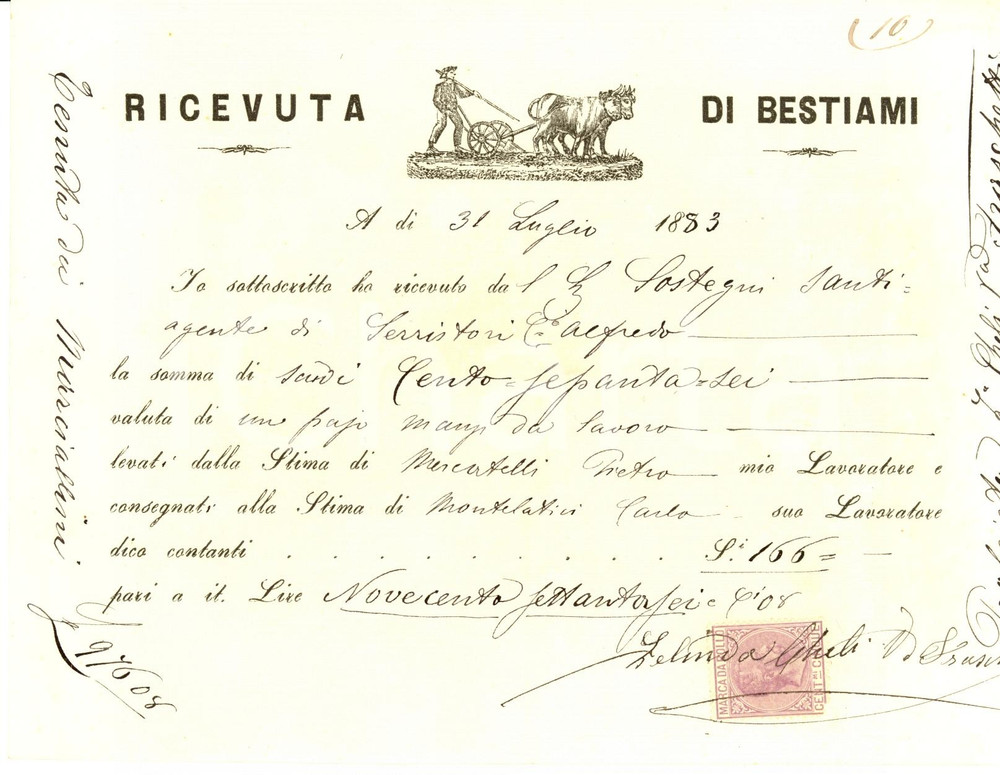 10
RICEVUTA DI BESTIAMI
A dì 31 Luglio 1883
Io sottoscritto ho ricevuto dal Sostegni Santi=
agente di Serristori C.e Alfredo
la somma di scudi Cento=sessanta=sei
valuta di un pajo manzi da lavoro
levati dalla Stima di Mercatelli Pietro mio Lavoratore e
consegnati alla Stima di Montelatici Carlo suo Lavoratore
dico contanti . . . . . . . . . . . S.i 166=
pari a it. Lire Novecento settantasei e C.i 08
Zelinda Gheli
MARCA DA BOLLO
CENT.MI CINQUE
Tenuta dei Marciallini
£ 976 08